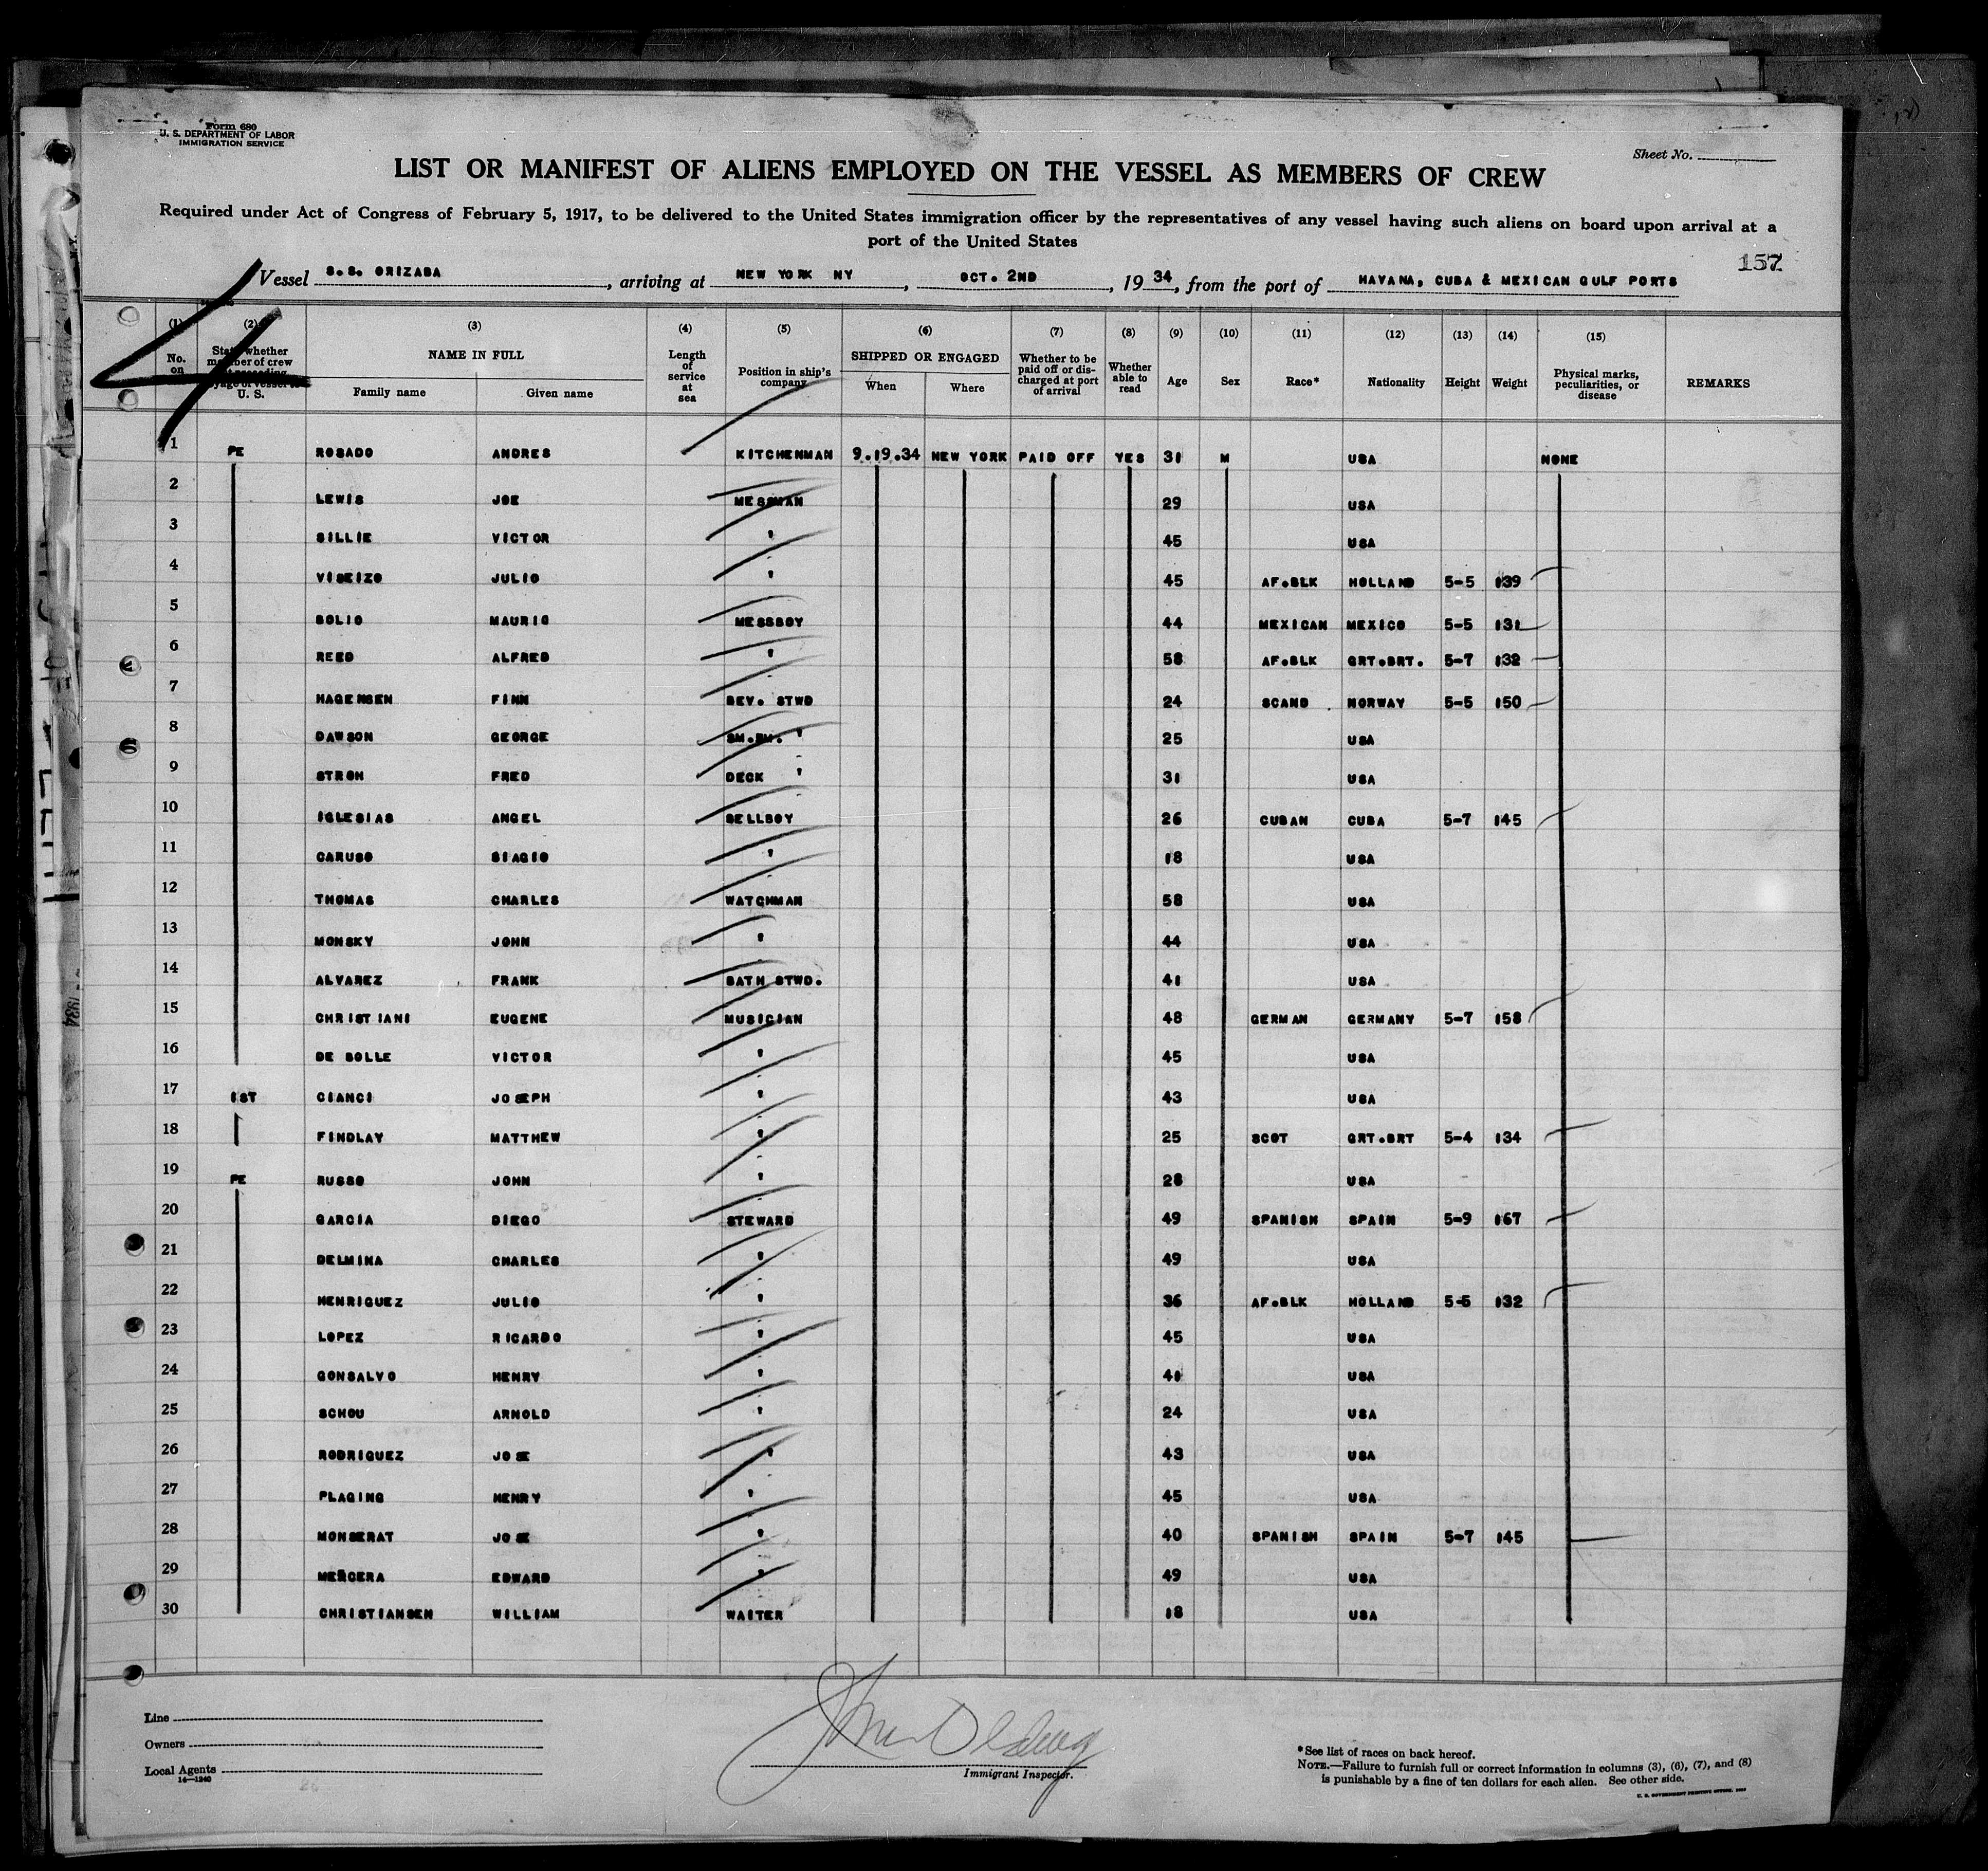 Form 680
U. S. DEPARTMENT OF LABOR
IMMIGRATION SERVICE
Sheet No.
LIST OR MANIFEST OF ALIENS EMPLOYED ON THE VESSEL AS MEMBERS OF CREW
Required under Act of Congress of February 5, 1917, to be delivered to the United States immigration officer by the representatives of any vessel having such aliens on board upon arrival at a
port of the United States
157
Vessel S.S. ORIZABA, arriving at NEW YORK NY, OCT. 2ND, 1934, from the port of HAVANA, CUBA & MEXICAN GULF PORTS
4
(1) (2) (3) (4) (5) (6) (7) (8) (9) (10) (11) (12) (13) (14) (15)
No. on | State whether member of crew voyage of vessel to U. S. | NAME IN FULL | Family name | Given name | Length of service at sea | Position in ship's company | SHIPPED OR ENGAGED | When | Where | Whether to be paid off or discharged at port of arrival | Whether able to read | Age | Sex | Race* | Nationality | Height | Weight | Physical marks, peculiarities, or disease | REMARKS
1 PE ROSADO ANDRES KITCHENMAN 9.19.34 NEW YORK PAID OFF YES 31 M USA NONE
2 LEWIS JOE MESSMAN 29 USA
3 SILLIE VICTOR " 45 USA
4 VISEIZO JULIO " 45 AF.BLK HOLLAND 5-5 139
5 BOLIO MAURIO MESSBOY 44 MEXICAN MEXICO 5-5 131
6 REED ALFRED " 58 AF.BLK GRT.BRT. 5-7 132
7 HAGENSEN FINN BEV. STWD 24 SCAND NORWAY 5-5 150
8 DAWSON GEORGE SM.RM. " 25 USA
9 STROH FRED DECK " 31 USA
10 IGLESIAS ANGEL BELLBOY 26 CUBAN CUBA 5-7 145
11 CARUSO BIAGIO " 18 USA
12 THOMAS CHARLES WATCHMAN 58 USA
13 MONSKY JOHN " 44 USA
14 ALVAREZ FRANK BATH STWD. 41 USA
15 CHRISTIANI EUGENE MUSICIAN 48 GERMAN GERMANY 5-7 158
16 DE BOLLE VICTOR " 45 USA
17 1ST CIANCI JOSEPH " 43 USA
18 FINDLAY MATTHEW " 25 SCOT GRT.BRT 5-4 134
19 PE RUSSO JOHN " 28 USA
20 GARCIA DIEGO STEWARD 49 SPANISH SPAIN 5-9 167
21 DELMINA CHARLES " 49 USA
22 HENRIQUEZ JULIO " 36 AF.BLK HOLLAND 5-6 132
23 LOPEZ RICARDO " 45 USA
24 GONSALVO HENRY " 41 USA
25 SCHOU ARNOLD " 24 USA
26 RODRIQUEZ JOSE " 43 USA
27 PLAGING HENRY " 45 USA
28 MONSERAT JOSE " 40 SPANISH SPAIN 5-7 145
29 MERCERA EDWARD " 49 USA
30 CHRISTIANSEN WILLIAM WAITER 18 USA
Line
Owners
Local Agents
14-1240
Immigrant Inspector.
*See list of races on back hereof.
NOTE.—Failure to furnish full or correct information in columns (3), (6), (7), and (8)
is punishable by a fine of ten dollars for each alien. See other side.
U. S. GOVERNMENT PRINTING OFFICE